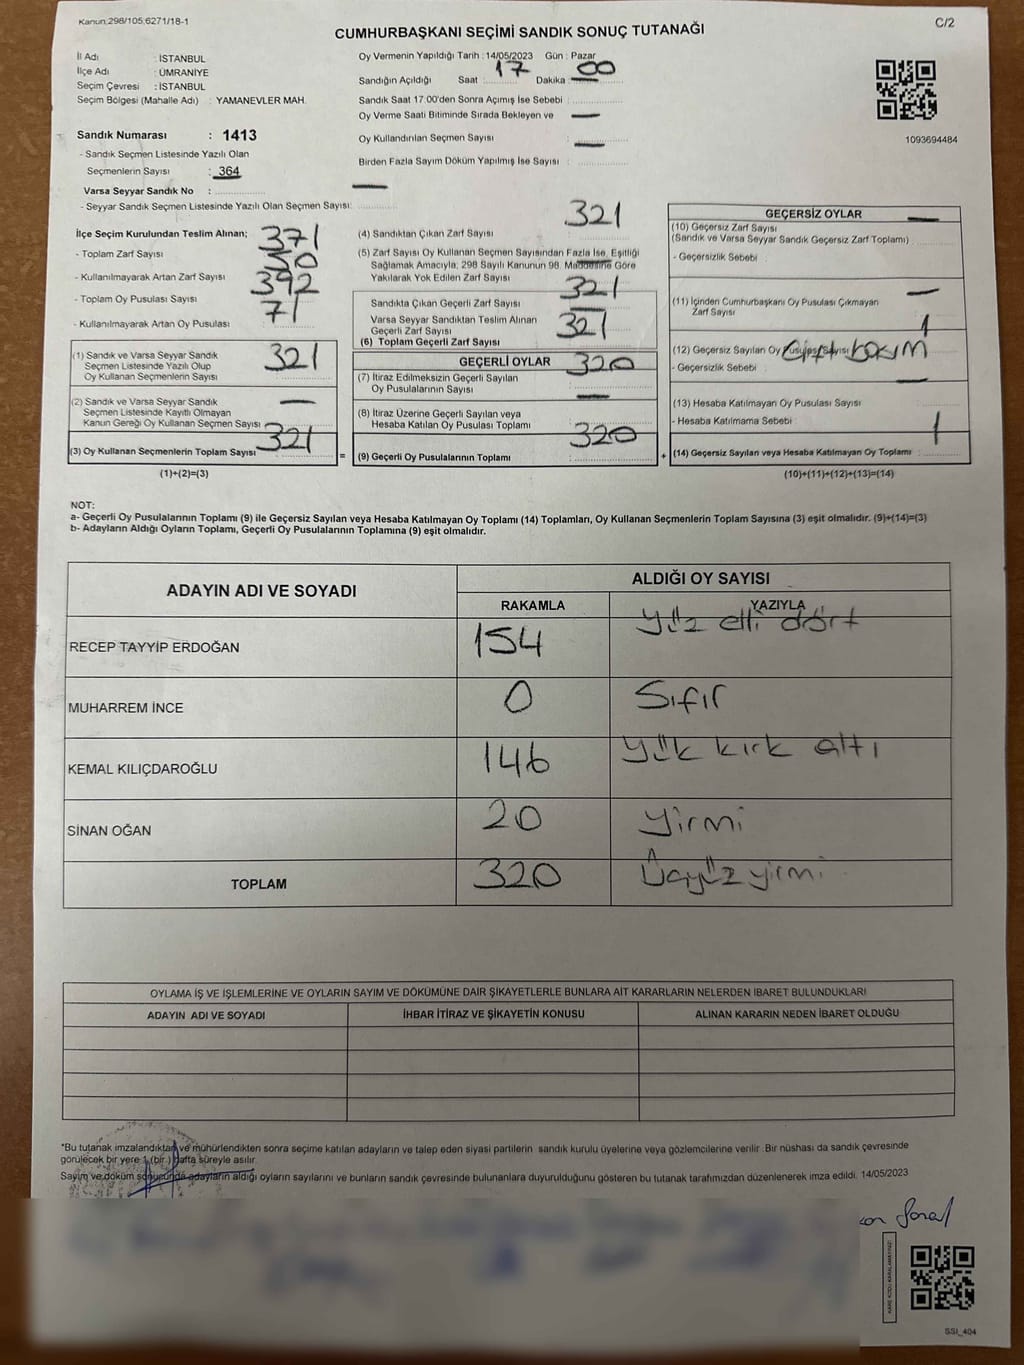 Kanun:298/105,6271/18-1
C/2
CUMHURBAŞKANI SEÇİMİ SANDIK SONUÇ TUTANAĞI
İl Adı : İSTANBUL
İlçe Adı : ÜMRANİYE
Seçim Çevresi : İSTANBUL
Seçim Bölgesi (Mahalle Adı) : YAMANEVLER MAH.
Sandık Numarası : 1413
- Sandık Seçmen Listesinde Yazılı Olan
Seçmenlerin Sayısı : 364
Varsa Seyyar Sandık No :
- Seyyar Sandık Seçmen Listesinde Yazılı Olan Seçmen Sayısı:
Oy Vermenin Yapıldığı Tarih : 14/05/2023 Gün : Pazar
Sandığın Açıldığı Saat : 17 Dakika : 00
Sandık Saat 17:00'den Sonra Açımış İse Sebebi :
Oy Verme Saati Bitiminde Sırada Bekleyen ve —
Oy Kullandırılan Seçmen Sayısı : —
Birden Fazla Sayım Döküm Yapılmış İse Sayısı :
1093694484
İlçe Seçim Kurulundan Teslim Alınan;
- Toplam Zarf Sayısı : 371
- Kullanılmayarak Artan Zarf Sayısı : 50
- Toplam Oy Pusulası Sayısı : 392
- Kullanılmayarak Artan Oy Pusulası : 71
(1) Sandık ve Varsa Seyyar Sandık
Seçmen Listesinde Yazılı Olup
Oy Kullanan Seçmenlerin Sayısı : 321
(2) Sandık ve Varsa Seyyar Sandık
Seçmen Listesinde Kayıtlı Olmayan
Kanun Gereği Oy Kullanan Seçmen Sayısı : —
(3) Oy Kullanan Seçmenlerin Toplam Sayısı : 321
(1)+(2)=(3)
(4) Sandıktan Çıkan Zarf Sayısı : 321
(5) Zarf Sayısı Oy Kullanan Seçmen Sayısından Fazla İse, Eşitliği
Sağlamak Amacıyla; 298 Sayılı Kanunun 98. Maddesine Göre
Yakılarak Yok Edilen Zarf Sayısı : —
Sandıkta Çıkan Geçerli Zarf Sayısı : 321
Varsa Seyyar Sandıktan Teslim Alınan
Geçerli Zarf Sayısı : —
(6) Toplam Geçerli Zarf Sayısı : 321
=
GEÇERLİ OYLAR
(7) İtiraz Edilmeksizin Geçerli Sayılan
Oy Pusulalarının Sayısı : 320
(8) İtiraz Üzerine Geçerli Sayılan veya
Hesaba Katılan Oy Pusulası Toplamı : —
(9) Geçerli Oy Pusulalarının Toplamı : 320
+
GEÇERSİZ OYLAR
(10) Geçersiz Zarf Sayısı —
(Sandık ve Varsa Seyyar Sandık Geçersiz Zarf Toplamı) :
- Geçersizlik Sebebi :
(11) İçinden Cumhurbaşkanı Oy Pusulası Çıkmayan —
Zarf Sayısı :
(12) Geçersiz Sayılan Oy Pusulası Sayısı : 1
- Geçersizlik Sebebi :
(13) Hesaba Katılmayan Oy Pusulası Sayısı : —
- Hesaba Katılmama Sebebi :
(14) Geçersiz Sayılan veya Hesaba Katılmayan Oy Toplamı : 1
(10)+(11)+(12)+(13)=(14)
NOT:
a- Geçerli Oy Pusulalarının Toplamı (9) ile Geçersiz Sayılan veya Hesaba Katılmayan Oy Toplamı (14) Toplamları, Oy Kullanan Seçmenlerin Toplam Sayısına (3) eşit olmalıdır. (9)+(14)=(3)
b- Adayların Aldığı Oyların Toplamı, Geçerli Oy Pusulalarının Toplamına (9) eşit olmalıdır.
ADAYIN ADI VE SOYADI
ALDIĞI OY SAYISI
RAKAMLA YAZIYLA
RECEP TAYYİP ERDOĞAN 154 yüz elli dört
MUHARREM İNCE 0 Sıfır
KEMAL KILIÇDAROĞLU 146 yük kırk altı
SİNAN OĞAN 20 yirmi
TOPLAM 320 Üçyüz yirmi
OYLAMA İŞ VE İŞLEMLERİNE VE OYLARIN SAYIM VE DÖKÜMÜNE DAİR ŞİKAYETLERLE BUNLARA AİT KARARLARIN NELERDEN İBARET BULUNDUKLARI
ADAYIN ADI VE SOYADI İHBAR İTİRAZ VE ŞİKAYETİN KONUSU ALINAN KARARIN NEDEN İBARET OLDUĞU
*Bu tutanak imzalandıktan ve mühürlendikten sonra seçime katılan adayların ve talep eden siyasi partilerin sandık kurulu üyelerine veya gözlemcilerine verilir. Bir nüshası da sandık çevresinde
görülecek bir yere 1 (bir) hafta süreyle asılır.
Sayım ve döküm sonucunda adayların aldığı oyların sayılarını ve bunların sandık çevresinde bulunanlara duyurulduğunu gösteren bu tutanak tarafımızdan düzenlenerek imza edildi. 14/05/2023
SSI_404